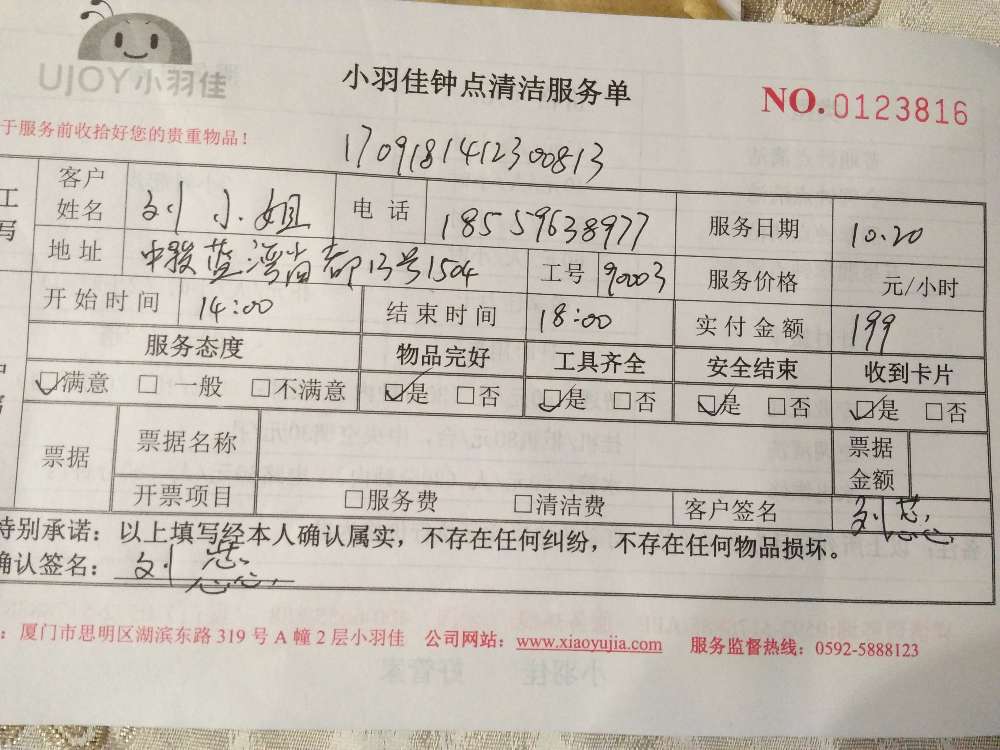 UJOY小羽佳
小羽佳钟点清洁服务单
NO.0123816
于服务前收拾好您的贵重物品！
1709181412300813
工
写
客户
姓名
刘小姐
电话
18559638977
服务日期
10.20
地址
中骏蓝湾尚都13号1504
工号
90003
服务价格
元/小时
开始时间
14:00
结束时间
18:00
实付金额
199
服务态度
物品完好
工具齐全
安全结束
收到卡片
☑满意 □一般 □不满意
☑是 □否
☑是 □否
☑是 □否
☑是 □否
票据
票据名称
票据
金额
开票项目
□服务费 □清洁费
客户签名
刘
特别承诺：以上填写经本人确认属实，不存在任何纠纷，不存在任何物品损坏。
确认签名：刘
：厦门市思明区湖滨东路319号A幢2层小羽佳 公司网站：www.xiaoyujia.com 服务监督热线：0592-5888123